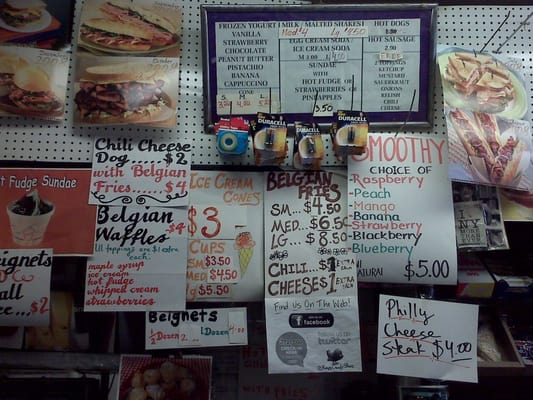 FROZEN YOGURT
VANILLA
STRAWBERRY
CHOCOLATE
PEANUT BUTTER
PISTACHIO
BANANA
CAPPUCCINO
CONE
S M L
MILK / MALTED SHAKES
Med 4 Lg 4.50
EGG CREAM SODA
ICE CREAM SODA
SUNDAE
WITH
HOT FUDGE or
STRAWBERRIES or
PINEAPPLES
3.50
HOT DOGS
HOT SAUSAGE
2.50
FREE
TOPPINGS
KETCHUP
MUSTARD
SAUERKRAUT
ONIONS
RELISH
CHILI
CHEESE
DURACELL
DURACELL
DURACELL
October
Chili Cheese
Dog $2
with Belgian
Fries $4
Belgian
Waffles $4
All toppings are $1 extra
each:
maple syrup
ice cream
hot fudge
whipped cream
strawberries
Fudge Sundae
$4.50
Beignets
1/2 Dozen 2.00
1 Dozen 4
Ice Cream
Cones
$3
Cups
SM $3.50
MED $4.50
LG $5.50
Belgian
Fries
SM... $4.50
MED... $6.50
LG... $8.50
CHILI $1 EXTRA
CHEESE $1 EXTRA
Find Us On The Web!
facebook
check-in here
follow us
twitter
SMOOTHY
CHOICE OF
- Raspberry
- Peach
- Mango
- Banana
- Strawberry
- Blackberry
- Blueberry
$5.00
I
NY
Philly
Cheese
Steak $4.00